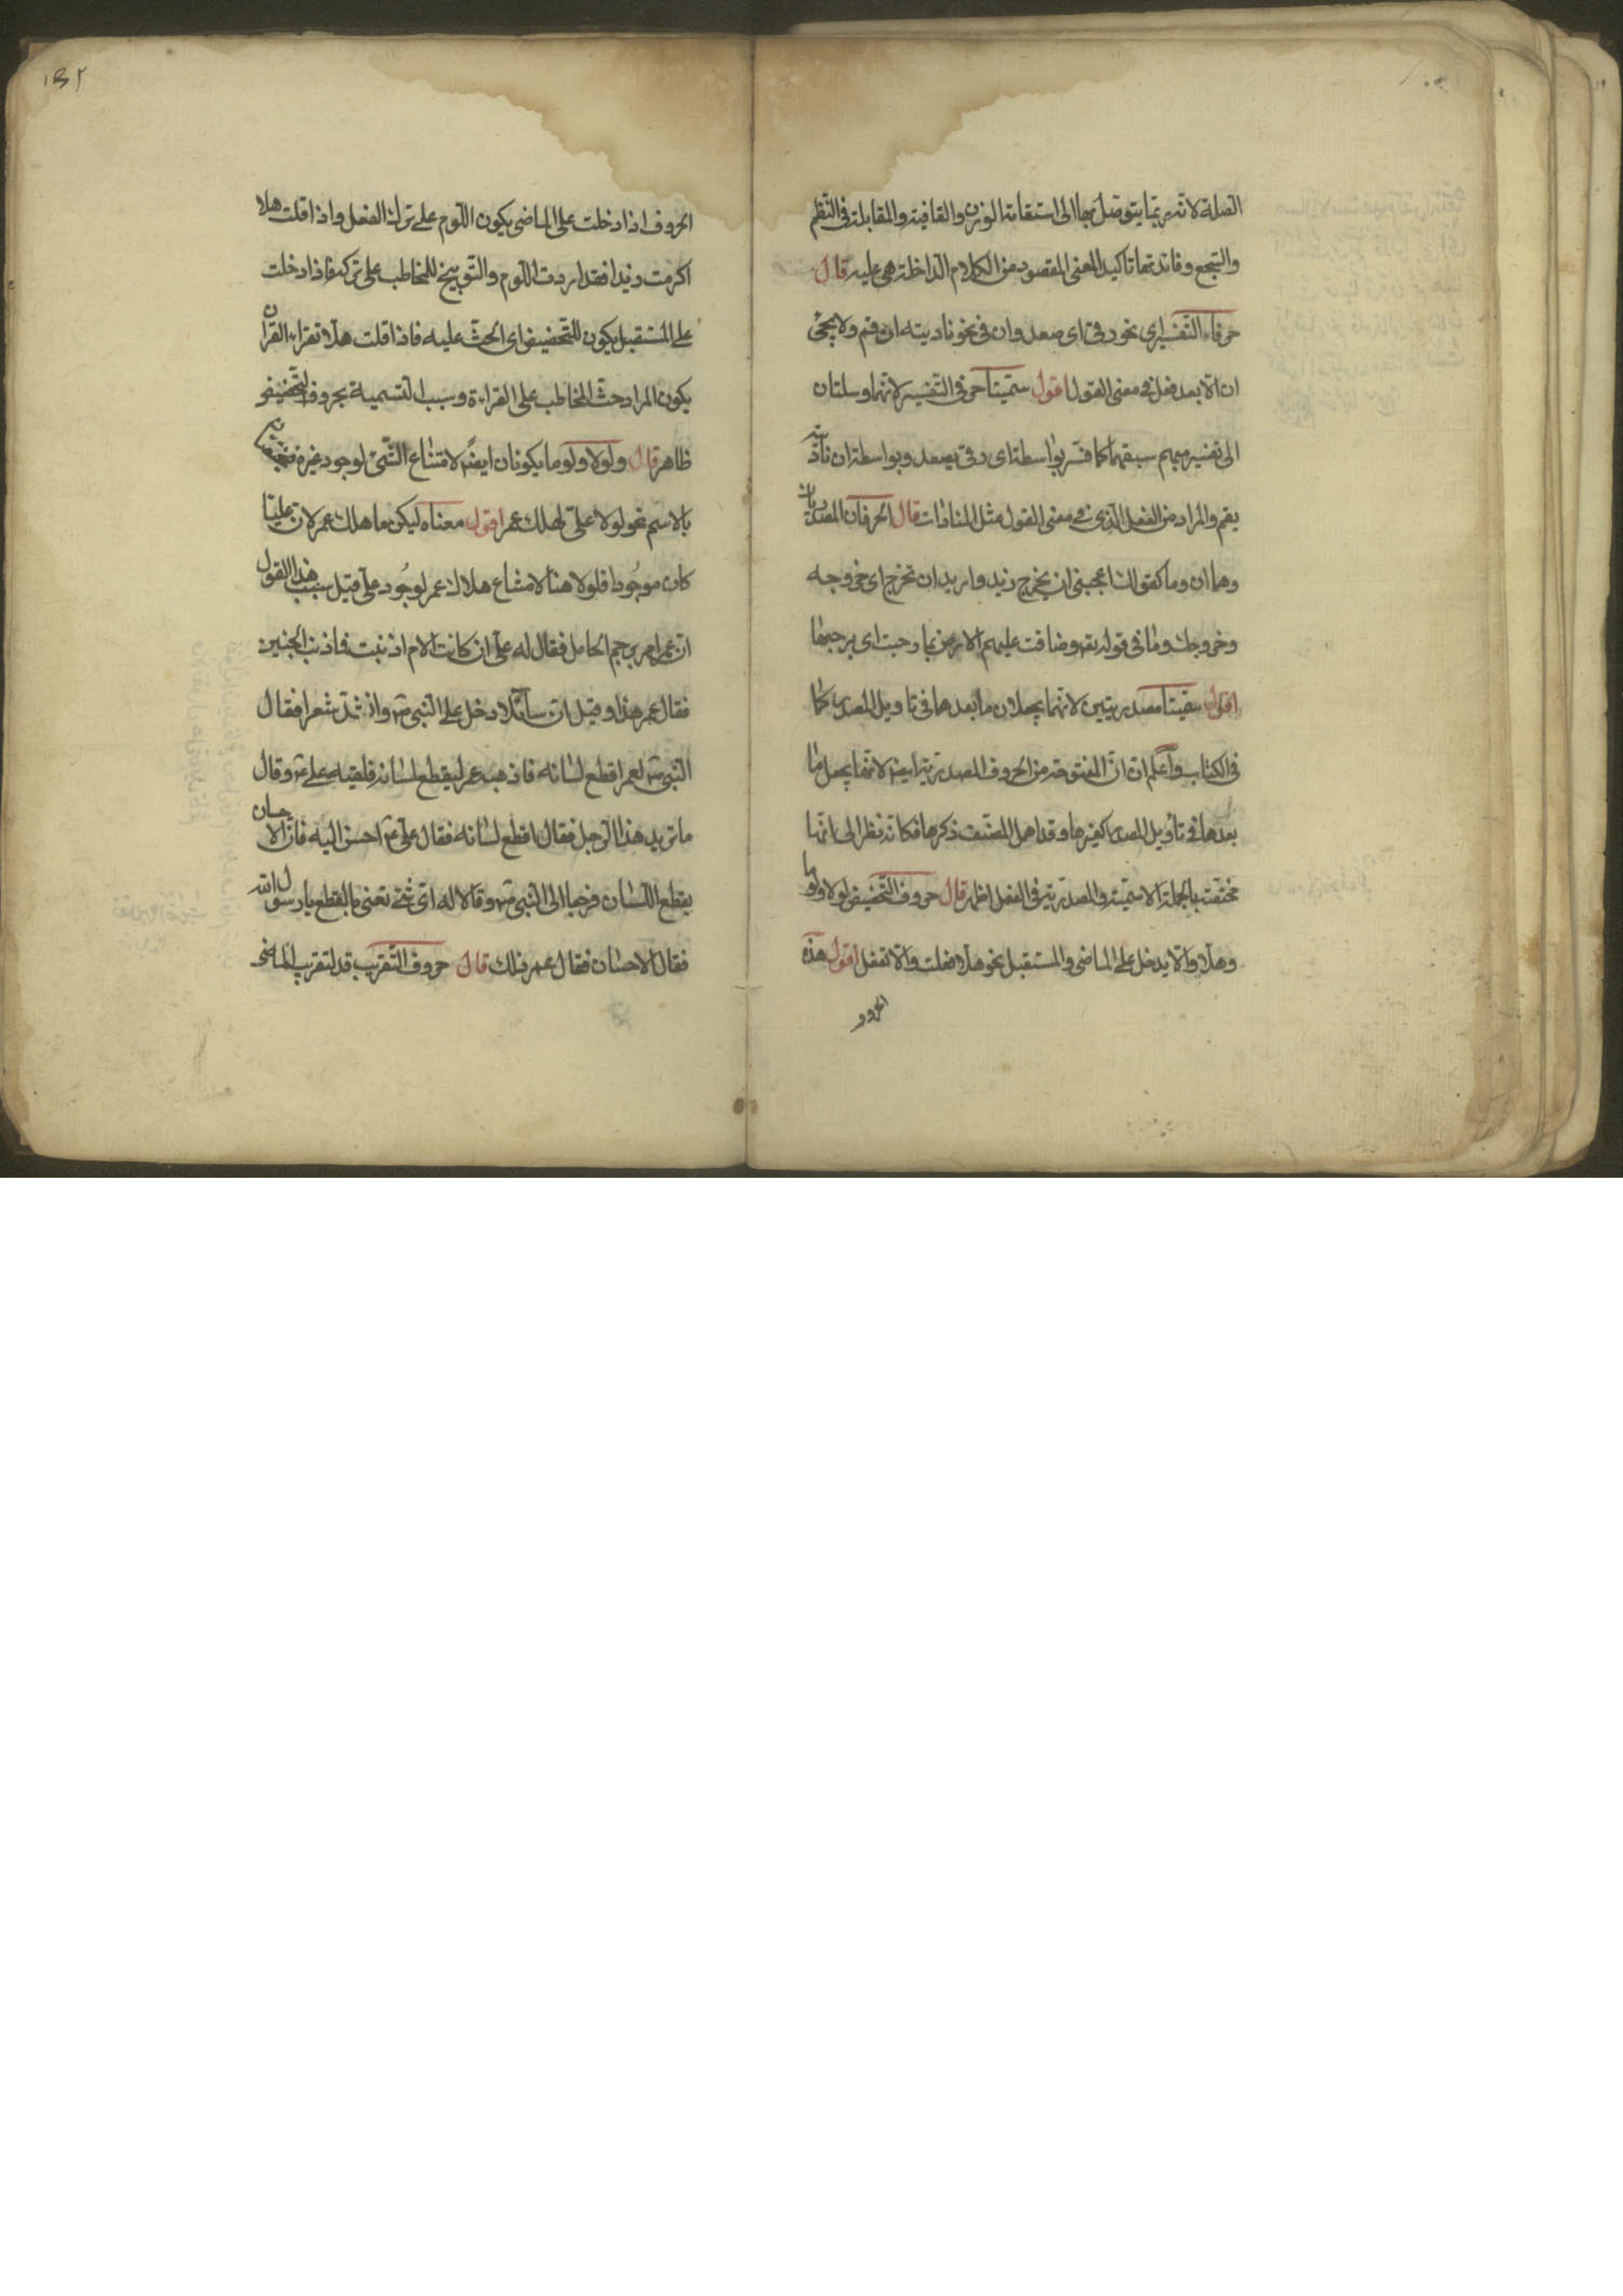 الصلة لانه ربما يتوصل بها الى استقامة الوزن والقافية والمقابلة فى النظم
والسجع وفائدتها تاكيد المعنى المقصود من الكلام الداخلة هى عليه قال
حرفا التفسير اى نحو رقى اى صعد وان فى نحو ناديته ان قم ولا يجئ
ان الا بعد فعل فى معنى القول اقول سمّيتا حرفى التفسير لانهما وسلتان
الى تفسير مبهم سبقهما كما فسّر بواسطة اى رقى بصعد وبواسطة ان ناديته
بقم والمراد من الفعل الذى فى معنى القول مثل المنادات قال الحرفان المصدريان
وهما ان وما كقولك اعجبنى ان يخرج زيد واريد ان تخرج اى خروجه
وخروجك وما فى قوله تعم وضاقت عليهم الارض بما رحبت اى برحبها
اقول سمّيتا مصدريتين لانهما يجعلان ما بعدهما فى تاويل المصدر كما
فى الكتاب واعلم ان انّ المفتوحة من الحروف المصدرية ايضا لانها يجعل ما
بعدها فى تأويل المصدر كغيرها وقد اهمل المصنّف ذكرها فكانه نظر الى انها
مختصّة بالجملة الاسميّة والمصدرية فى الفعل اظهر قال حروف التخضيض لولا ولوما
وهلّا والا يدخل على الماضى والمستقبل نحو هلّا فعلت والا تفعل اقول هذه
الحروف
١٥٢
الحروف اذا دخلت على الماضى يكون اللّوم على ترك الفعل واذا قلت هلا
اكرمت زيدا فقد اردت اللّوم والتّوبيخ للمخاطب على تركه فاذا دخلت
على المستقبل يكون للتحضيض اى الحثّ عليه فاذا قلت هلّا تقراء القران
يكون المراد حثّ المخاطب على القراءة وسبب التسمية بحروف التخضيض
ظاهر قال ولولا ولوما يكونان ايضا لامتناع الشّئ لوجود غيره فيختصان
بالاسم نحو لولا علىّ لهلك عمر اقول معناه ليكن ما هلك عمر لان عليّا
كان موجُودا فلولا هنا لامتناع هلاك عمر لوجُود علىّ قيل سبب هذا القول
انّ عمر امر برجم الحامل فقال له علىّ ان كانت الام اذنبت فاذنب الجنين
فقال عمر هذا وقيل انّ سآئلا دخل على النّبى ص وانشد شعرا فقال
النّبى ص لعمر اقطع لسانه فاذهبه عمر ليقطع لسانه فلقيه على ع وقال
ما تريد هذا الرّجل فقال اقطع لسانه فقال علىّ ع احسن اليه فانّ الاحسان
يقطع اللّسان فرجعا الى النّبى ص وقالا له اىّ شئ تعنى بالقطع يا رسول الله
فقال الاحسان فقال عمر ذلك قال حروف التّقريب قد لتقريب الماضى